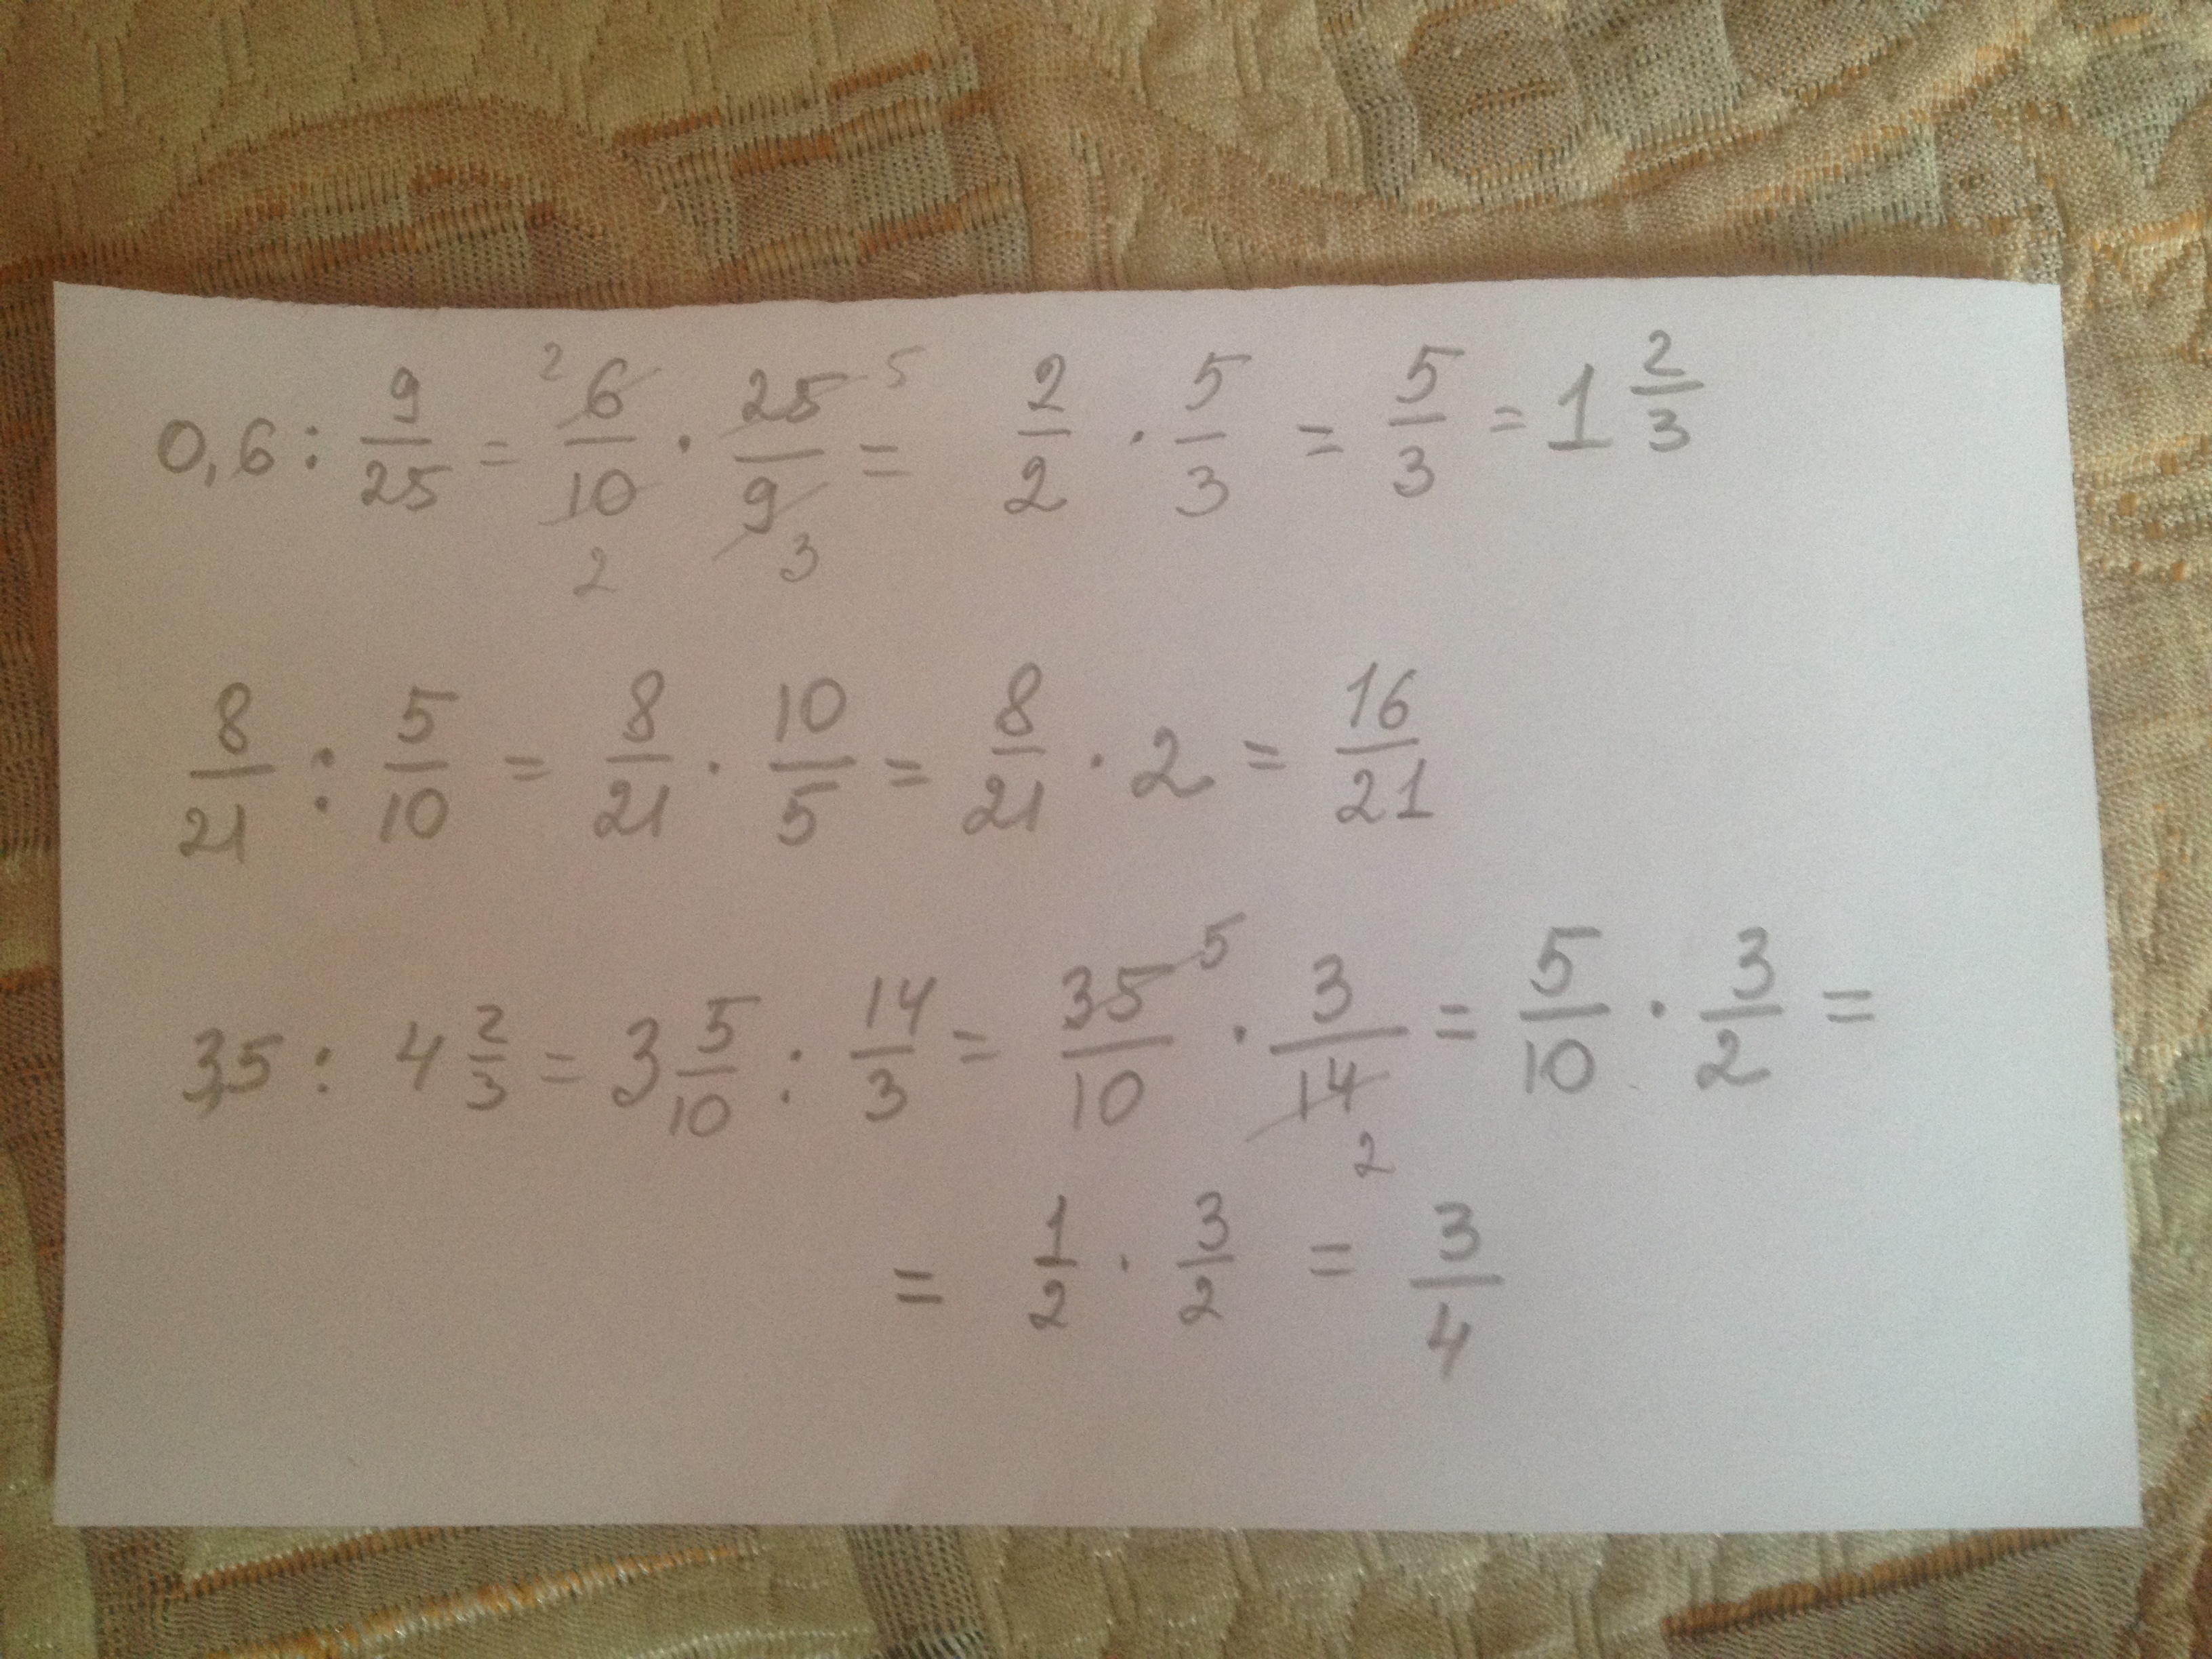 0,6 : 9/25 = ²6/10₂ · 25⁵/9₃ = 2/2 · 5/3 = 5/3 = 1 2/3
8/21 : 5/10 = 8/21 · 10/5 = 8/21 · 2 = 16/21
3,5 : 4 2/3 = 3 5/10 : 14/3 = 35⁵/10 · 3/14₂ = 5/10 · 3/2 =
= 1/2 · 3/2 = 3/4